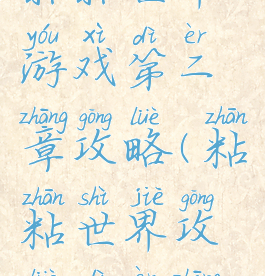 yóu xì dì èr
游戏第二
zhāng gōng lüè zhān
章攻略(粘
zhān shì jiè gōng
粘世界攻